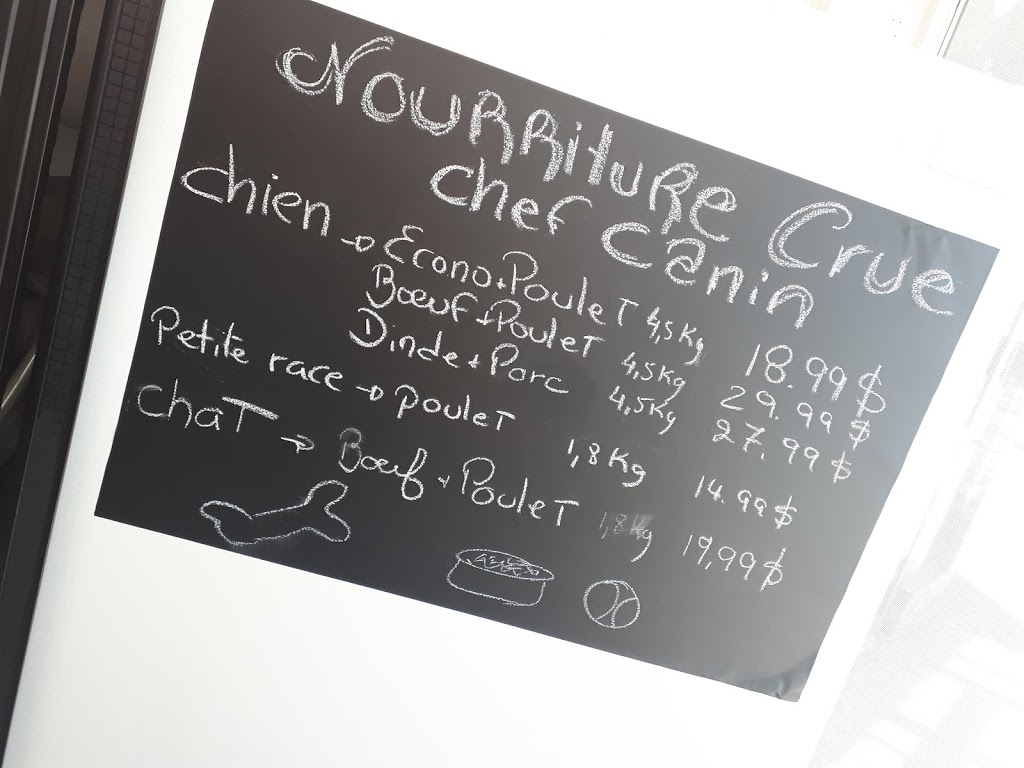 Nourriture Crue
chef canin
chien → Econo + Poulet 4,5 Kg 18.99 $
Bœuf + Poulet 4,5 Kg 29.99 $
Dinde + Porc 4,5 Kg 27.99 $
Petite race → Poulet 1,8 Kg 14.99 $
chat → Bœuf + Poulet 1,8 Kg 19,99 $